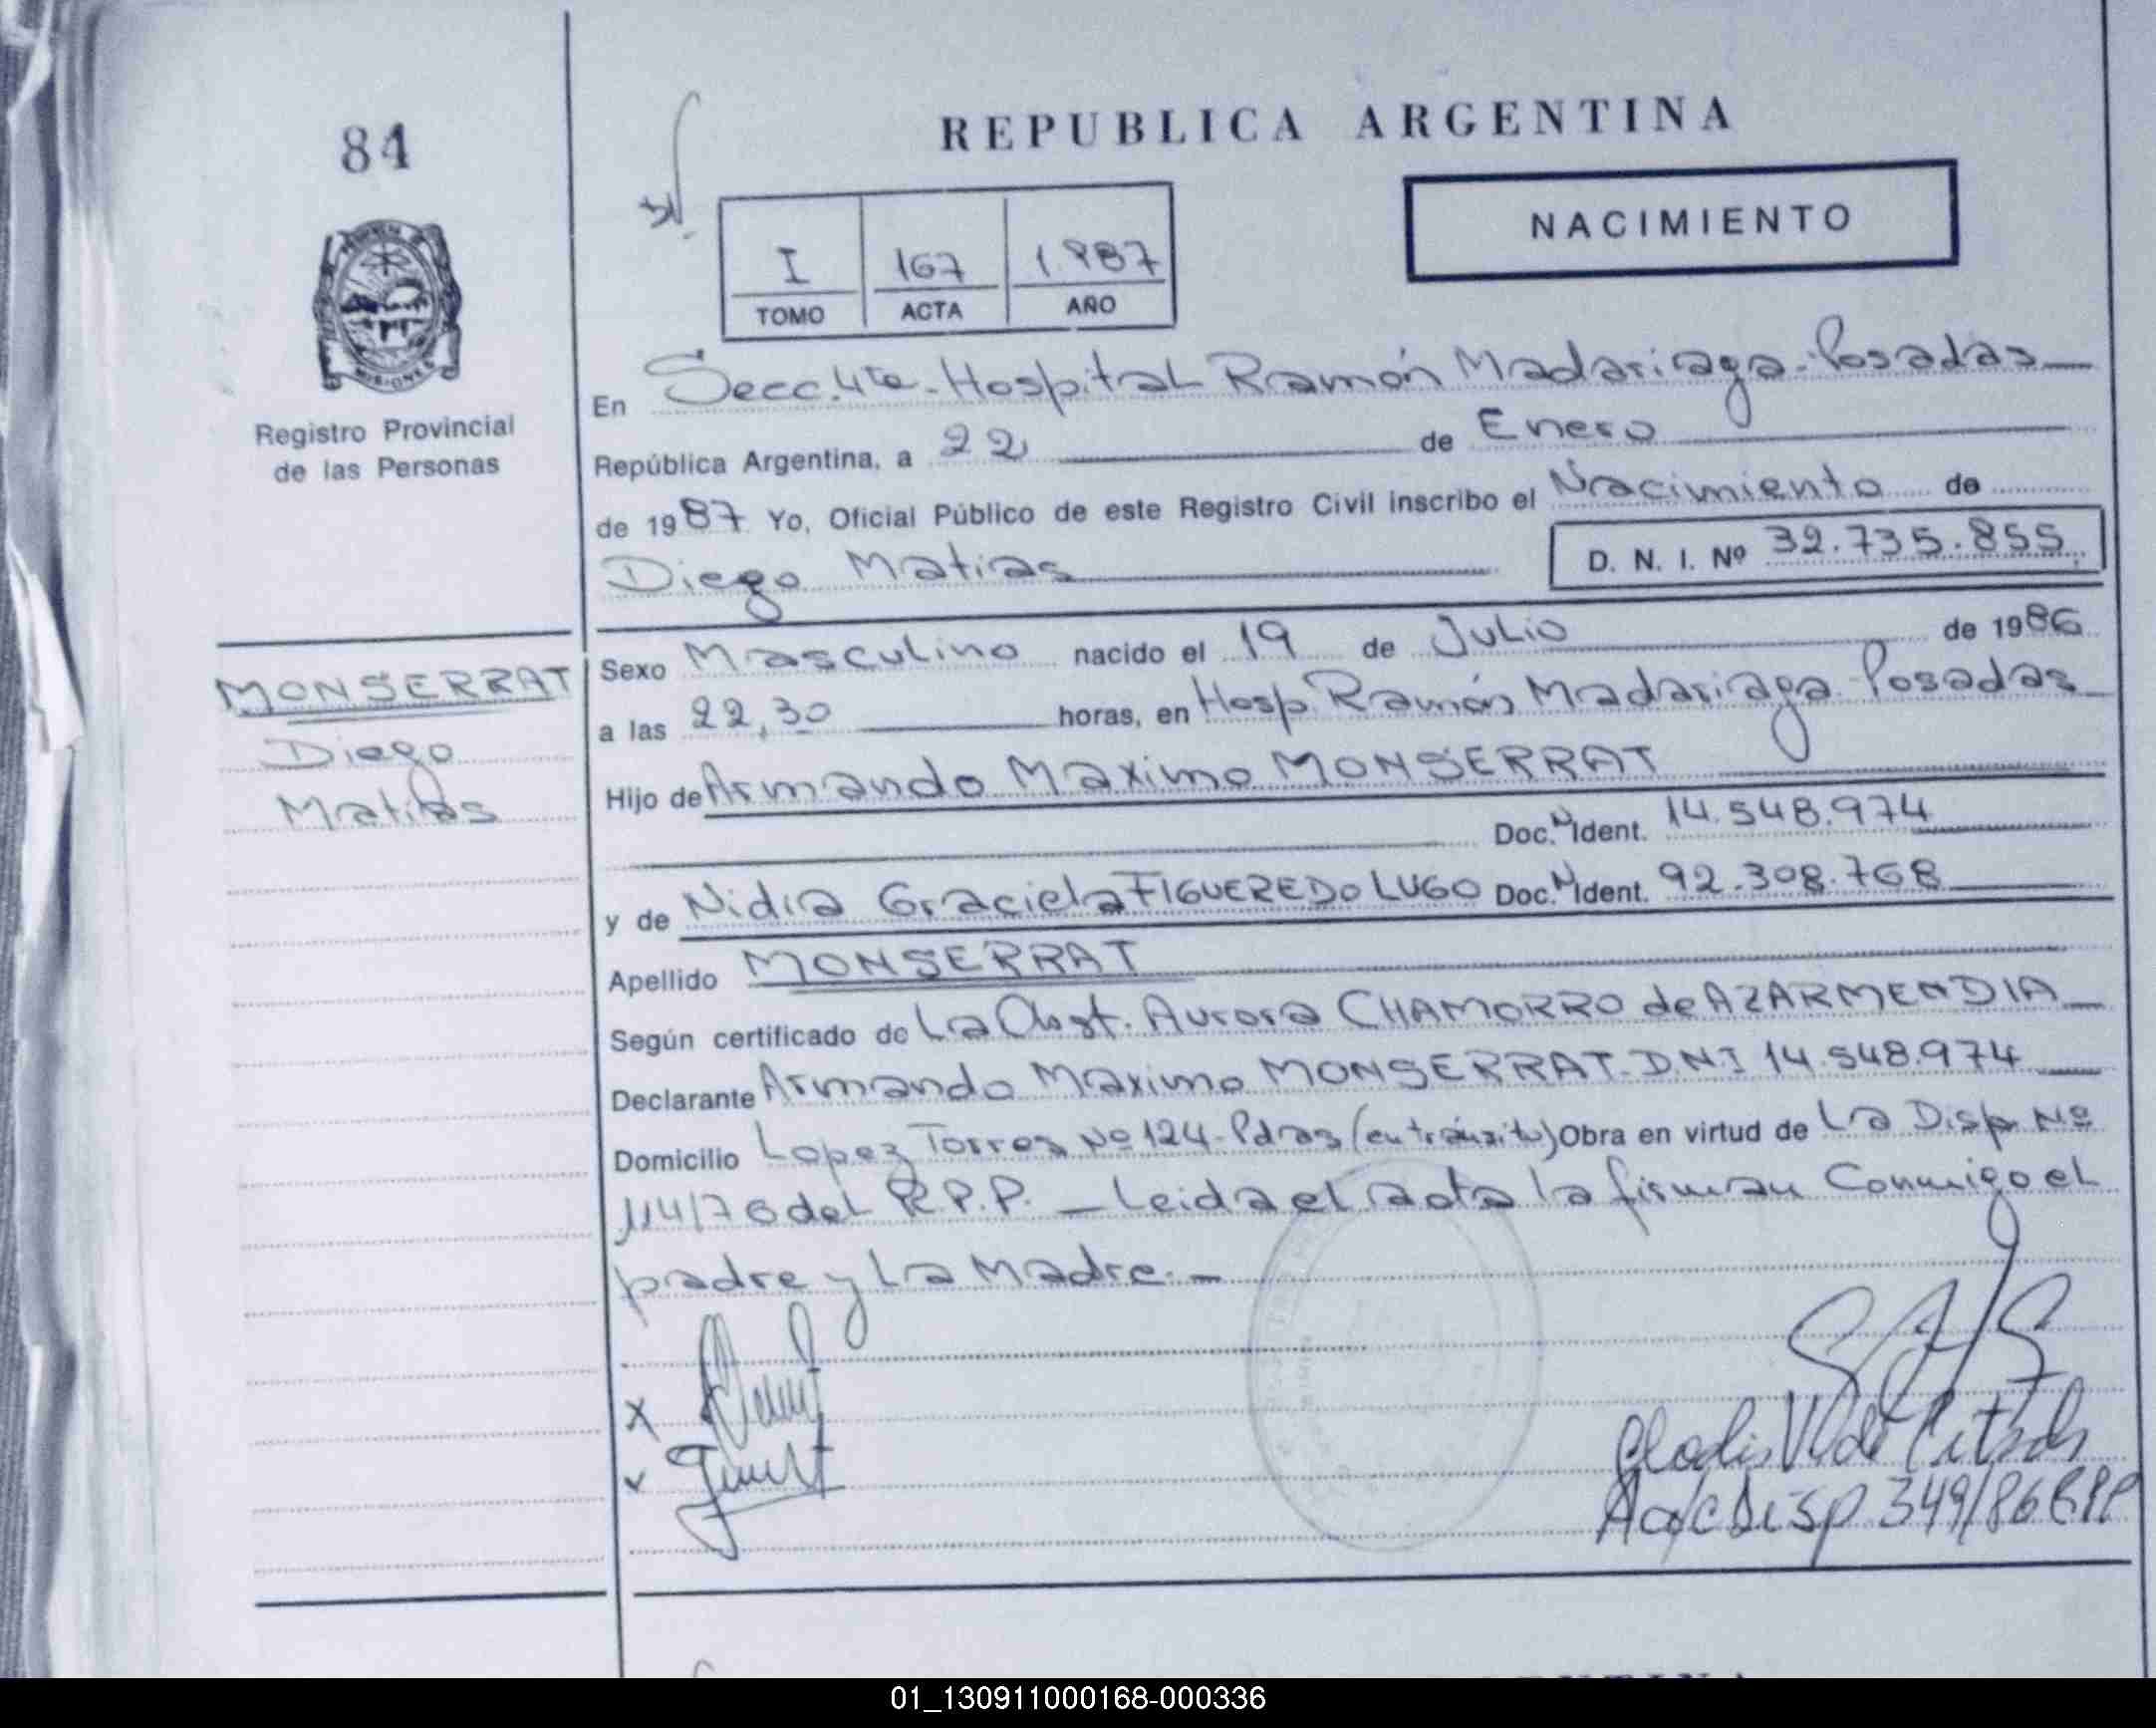 84
REPUBLICA ARGENTINA
NACIMIENTO
I 167 1.987
TOMO ACTA AÑO
MISIONES
Registro Provincial
de las Personas
En Secc. 4ta - Hospital Ramón Madariaga - Posadas
República Argentina, a 22 de Enero
de 1987 Yo, Oficial Público de este Registro Civil inscribo el Nacimiento de
Diego Matias D. N. I. Nº 32.735.855
MONSERRAT
Diego
Matias
Sexo Masculino nacido el 19 de Julio de 1986
a las 22,30 horas, en Hosp. Ramón Madariaga - Posadas
Hijo de Armando Maximo MONSERRAT
Doc. N Ident. 14.548.974
y de Nidia Graciela FIGUEREDO LUGO Doc. N Ident. 92.308.768
Apellido MONSERRAT
Según certificado de La Obst. Aurora CHAMORRO de AZARMENDIA
Declarante Armando Maximo MONSERRAT - DNI 14.548.974
Domicilio Lopez Torres Nº 124 - Pdas (en tránsito) Obra en virtud de La Disp Nº
114/76 del R.P.P. - Leida el acta la firman Conmigo el
padre y La Madre. -
Disp 349/86 RPP
01_130911000168-000336